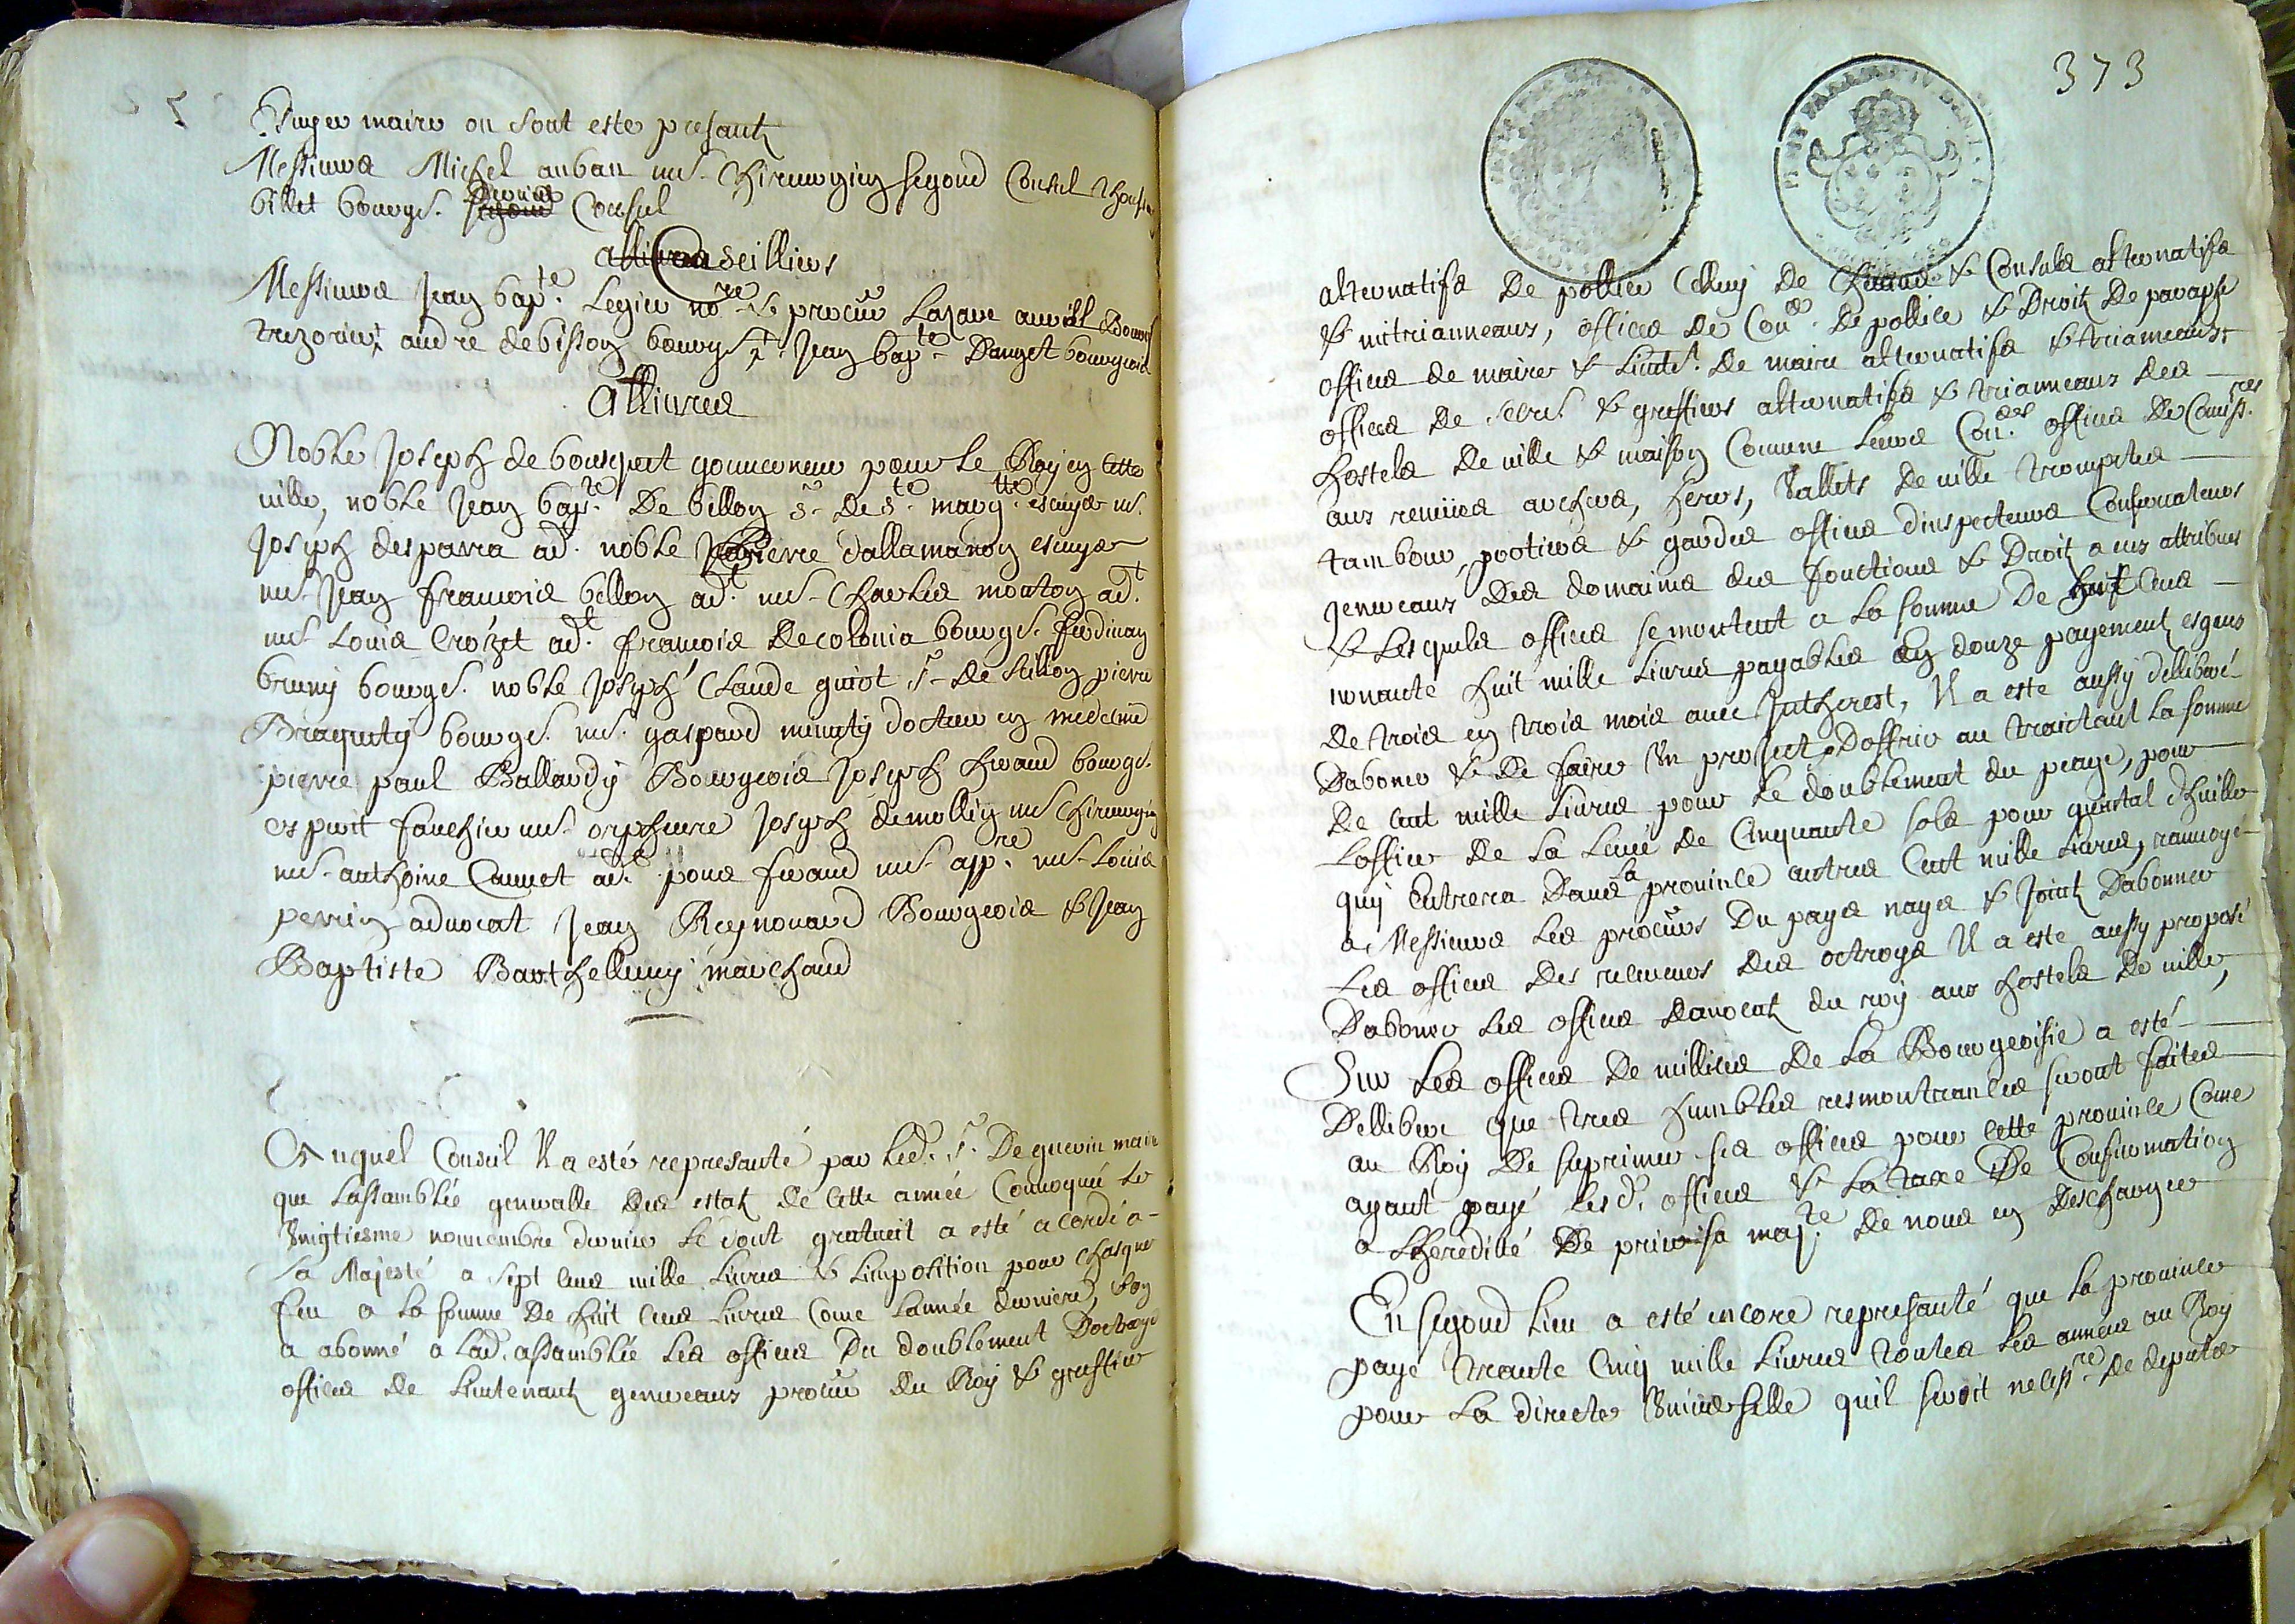 Viguier maire ou sont este presantz
Messieurs Michel auban me. Chirurgien segond Consul
billet bourgs. segond Dernier Consul
allivres Conseilliers
Messieurs Jean bapte. Legier nore. & procur Lazare
trezorier, andre de bisson bourgs. Jean bapte. Dauget bourgeois
Allivres
Noble Joseph de bousquet gouverneur pour le Roy en cette
ville, noble Jean bapte. De billon sr. De ste. margtte. escuyer me.
Joseph desparra adt. noble pierre dallamanon escuyer
me. Jean francois bellon adt. me. Charles mouton adt.
me. Louis Croizet adt. francois Decolonia bourgs. ferdinan
bruny bourgs. noble Joseph Claude guiot sr. De pierre
bourgs. me. gaspard minuty docteur en medecine
pierre paul Ballardy Bourgeois Joseph hraud bourgs.
esprit fauchier me. orphevre Joseph demollin me Chirurgien
me. anthoine Cannet adt. pons feraud me. appre. me. Louis
perrin advocat Jean Reynouard Bourgeois & Jean
Baptiste Barthellemy marchand
Auquel Conseil Il a esté represanté par led. sr. De guerin maire
que Lassamblée generalle des estatz de cette année Convoquée le
Vingtiesme novembre dernier le dont gratuit a esté acordé a
sa Majesté a sept cens mille Livres & Limposition pour chasque
feu a la somme De huit cens Livres Come Lannée derniere, lon
a abonné a lad. assamblée les offices Du doublement Doctroys
offices de Lieutenantz generaux procur Du Roy & greffier
373
alternatifs De pollice Celluy De & Consuls alternatifs
& mitriannaux, offices De Conrs. De pollice & Droitz De paraphe
offices de maires & Lieutt. De maire alternatifs & triannaux,
offices De secres. & greffiers alternatifs & triannaux des
hostels De ville & maison Comune Leurs Conrs. offices De Comissres.
aux reveües archers, hero's, Vallets De ville trompetes
tambour, portiers & gardes offices dinspecteurs Conservateurs
generaux des domaines des fonctions & Droitz a eux attribues
& Lesquels offices se montent a la somme De huit cens
nonante huit mille Livres payables en douze payementz esgeus
De trois en trois mois avec Intherest, Il a este aussy dellibéré
Dabonner & De faire Un project & Doffrir au traictant La somme
De cent mille Livres pour Le doublement du peage, pour
Loffice De La Levée de Cinquante sols pour quintal dhuille
quy Entrera Dans la province autres Cent mille Livres, ranvoyé
a Messieurs Les procurs Du pays nays & jointz Dabonner
Les offices Des receveurs des octroys Il a este aussy proposé
Dabonner Les offices Davocatz du roy aux hostels De ville,
Sur Les offices De millices De La Bourgeoisie a esté
Dellibere que tres humbles resmontrances seront faites
au Roy De suprimer ses offices pour cette province Come
ayant payé lesd. offices & La taxe De Confirmation
a Lheredité De prier sa majte. De nous en Descharger
En segond Lieu a esté encore represanté que La province
paye trante Cinq mille Livres toutes les années au Roy
pour La directe Universelle quil seroit necessre. De deputer